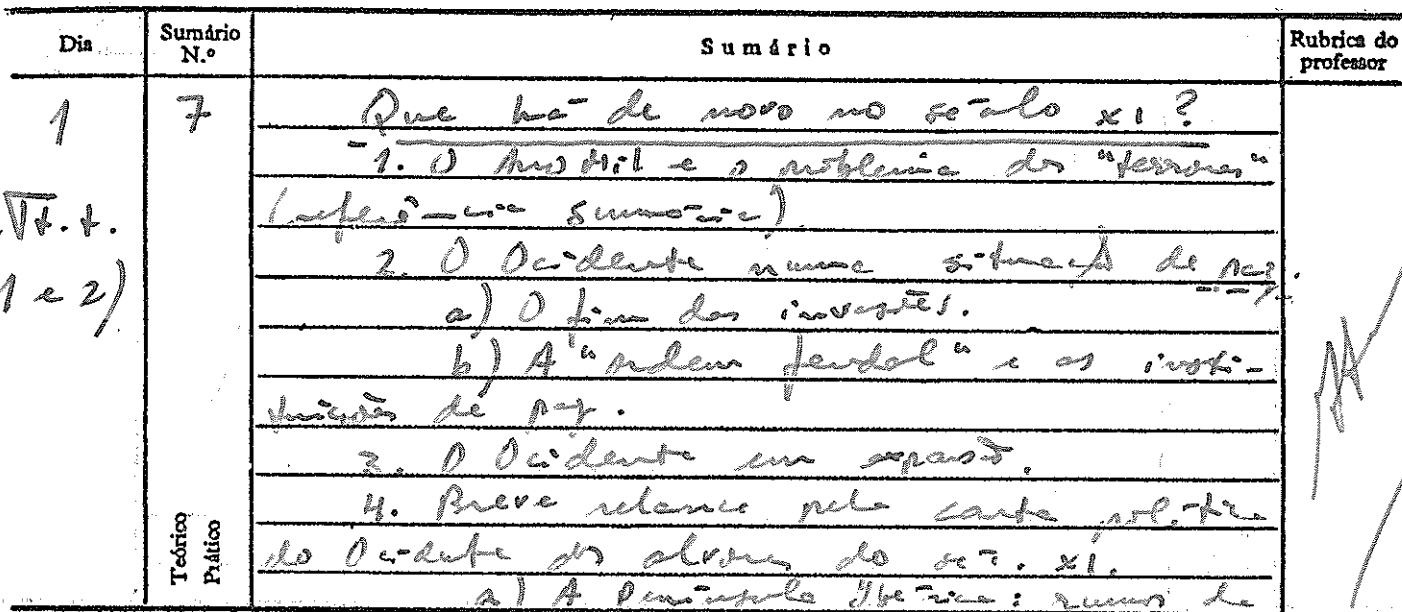 Dia Sumário N.º Sumário Rubrica do professor
1 7 Que há de novo no século XI?
1. O Ano Mil e o problema dos "terrores"
t.t. (referência sumária)
2. O Ocidente numa situação de paz.
1 e 2) a) O fim das invasões.
b) A "ordem feudal" e as insti-
tuições de paz.
3. O Ocidente em expansão.
4. Breve relance pela carta política
Teórico Prático do Ocidente dos alvores do séc. XI.
a) A Península Ibérica: rumos de